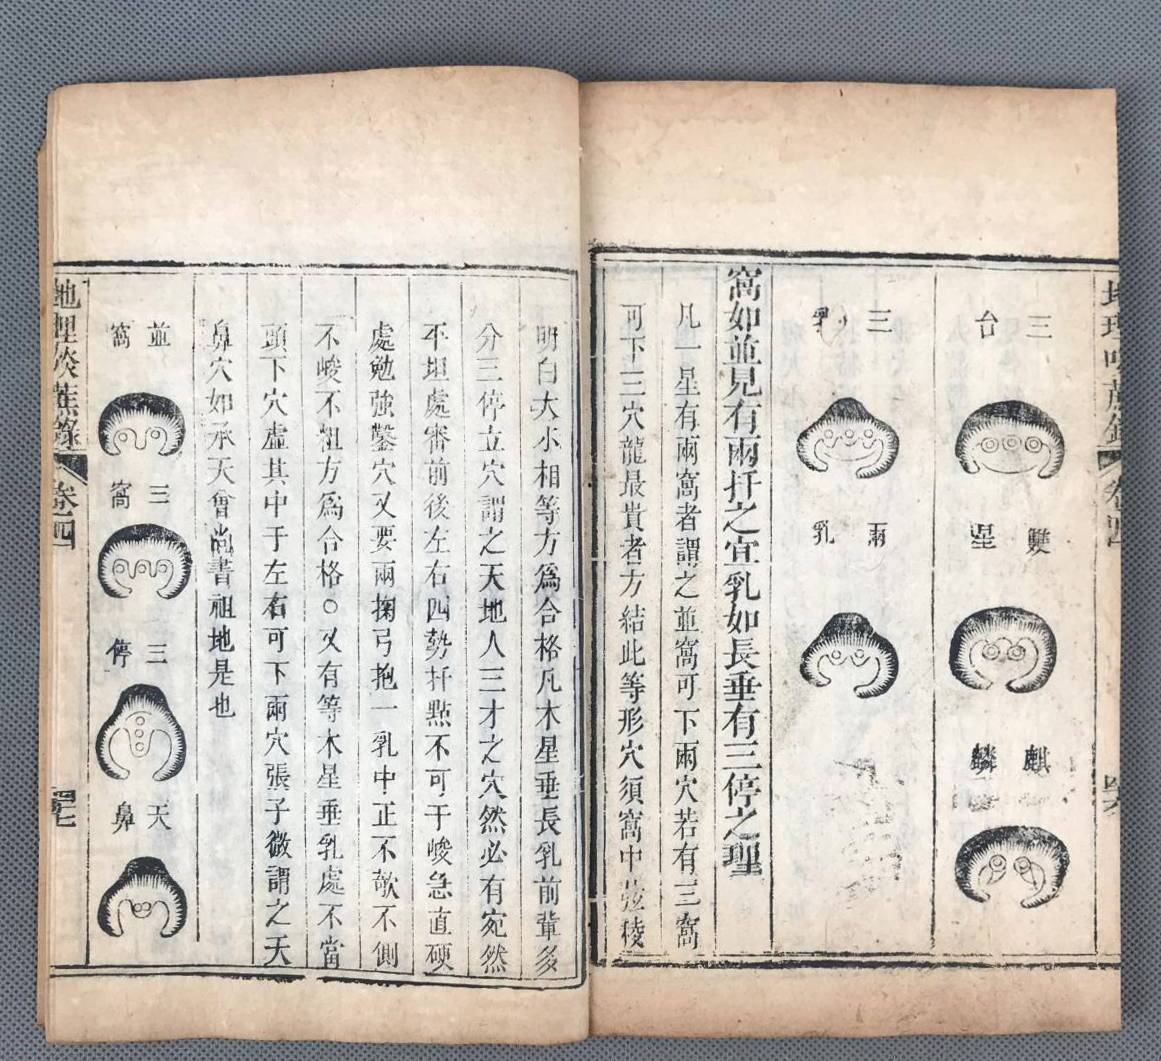 地理啖蔗錄 卷四
三台
雙星
麒麟
三乳
兩乳
窩如並見有兩扦之宜乳如長垂有三停之理
凡一星有兩窩者謂之並窩可下兩穴若有三窩
可下三穴龍最貴者方結此等形穴須窩中弦稜
明白大小相等方爲合格凡木星垂長乳前輩多
分三停立穴謂之天地人三才之穴然必有宛然
平坦處審前後左右四勢扦點不可于峻急直硬
處勉強鑿穴又要兩掬弓抱一乳中正不欹不側
不峻不粗方爲合格○又有等木星垂乳處不當
頭下穴虛其中于左右可下兩穴張子微謂之天
鼻穴如承天會尚書祖地是也
並窩
三窩
三停
天鼻
地理啖蔗錄 卷四 四七